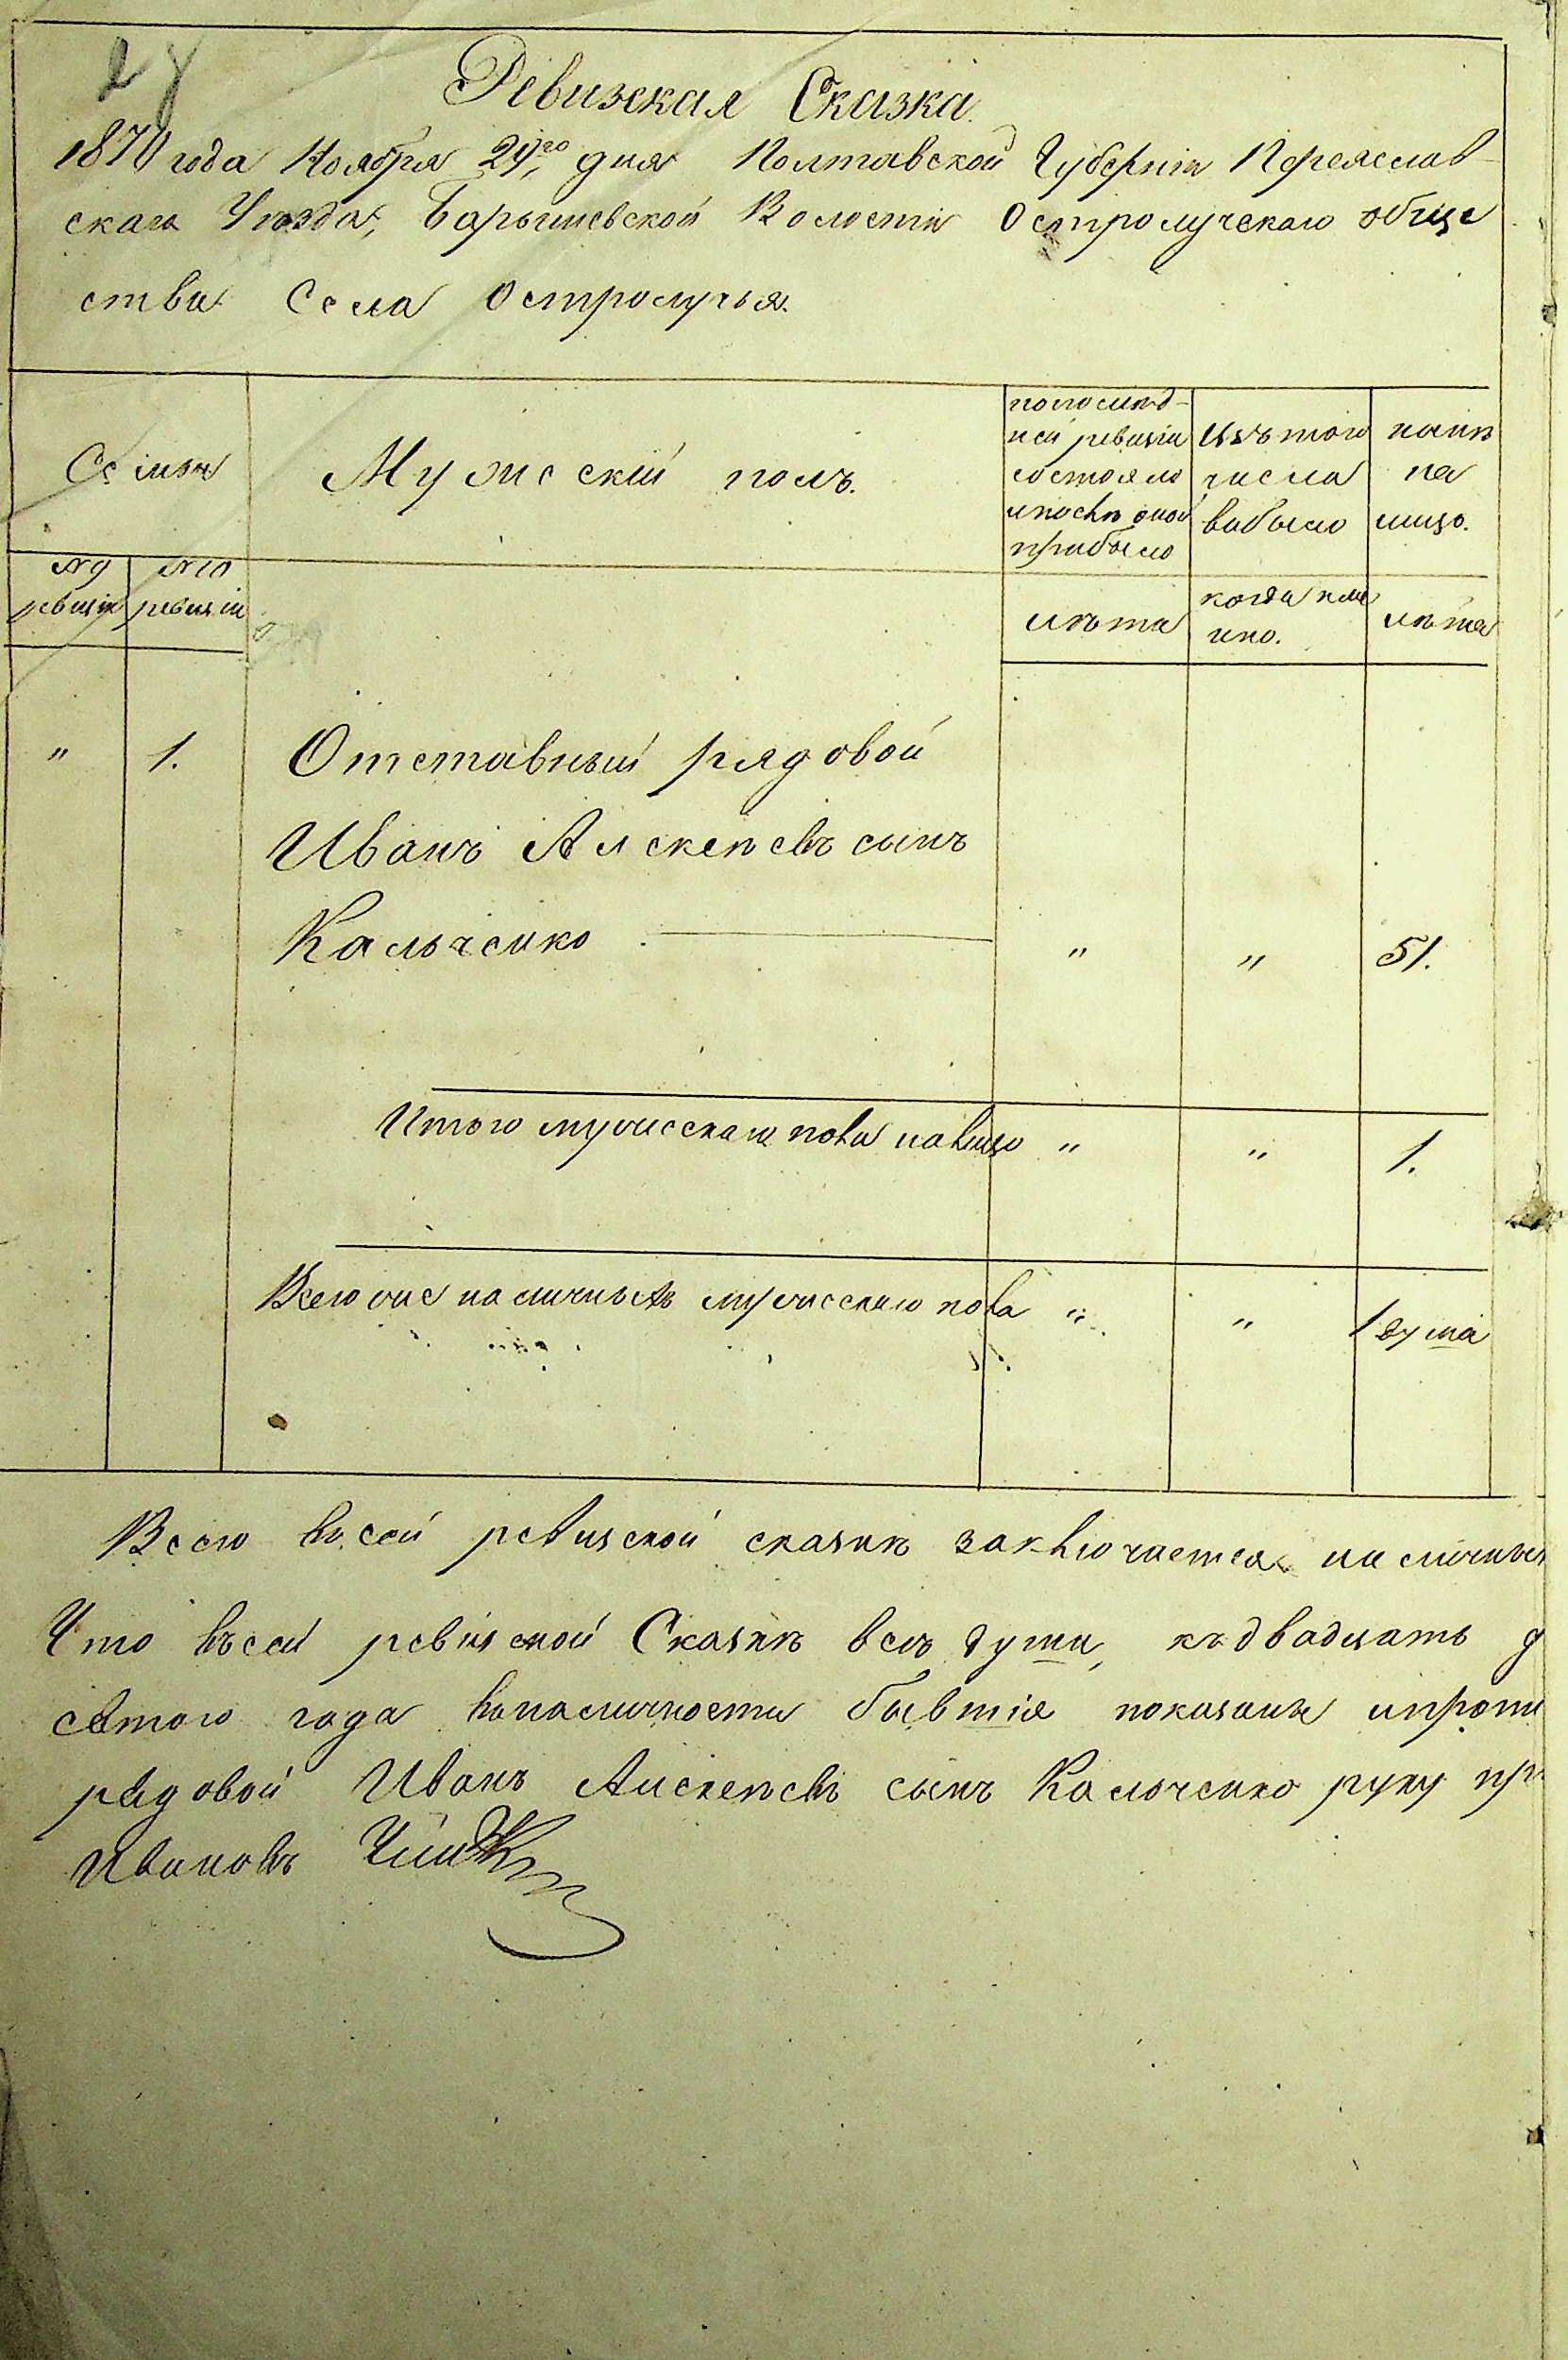 Ревизская Сказка.
1870 года Ноября 24го дня Полтавской Губерніи Переяслав-
скаго Уѣзда, Барышевской Волости Остролучскаго обще
ства Села Остролучья.
Семьи
Мужескій полъ.
по послѣд-
ней ревизіи
состояло
и послѣ оной
прибыло
Изъ того
числа
выбыло
нынѣ
на
лицо.
№ 9
ревизіи
№ 10
ревизіи
лѣта
когда именно.
лѣта
" 1. Отставный рядовой
Иванъ Алексѣевъ сынъ
Кальченко " " 51.
Итого мужескаго пола на лицо " " 1.
Всего же наличныхъ мужескаго пола " " 1 душа
Всего въ сей ревизской сказкѣ заключается наличныхъ
Что въ сей ревизской Сказкѣ всѣ души, къ двадцать
сятого года въ наличности бывшіе показаны и
рядовой Иванъ Алексѣевъ сынъ Кальченко руку
Ивановъ